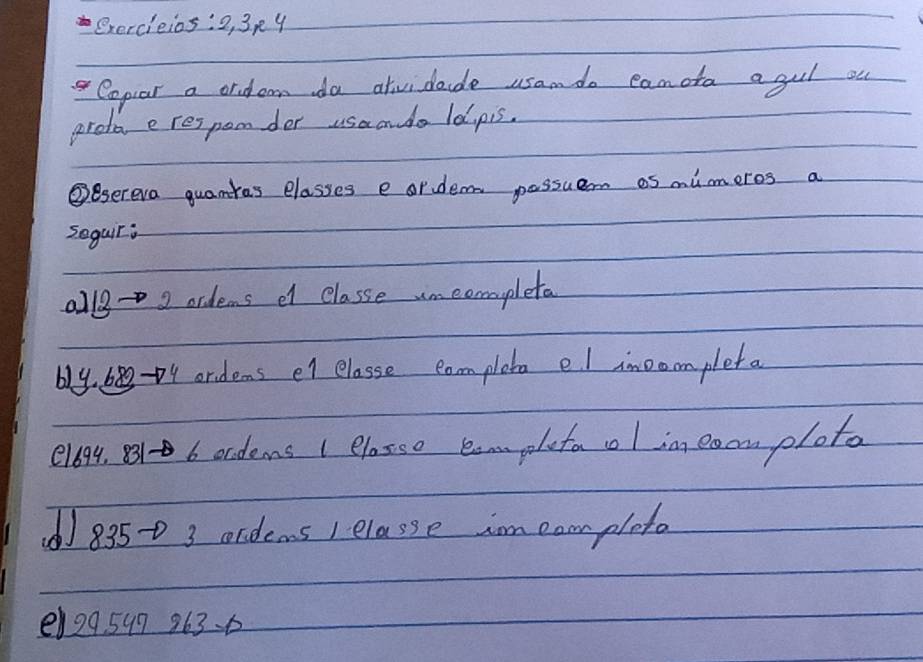 * Exercícios: 2, 3 e 4
* Copiar a ordem da atividade usando caneta azul ou
preta e responder usaando lápis.
2) Escreva quantas classes e ordem possuem os números a
seguir:
a) 12 → 2 ordens e 1 classe incompleta
b) 4.682 → 4 ordens e 1 classe completa e 1 incompleta
c) 694.831 → 6 ordens 1 classe completa e 1 incompleta
d) 835 → 3 ordens 1 classe incompleta
e) 29 547 263 →